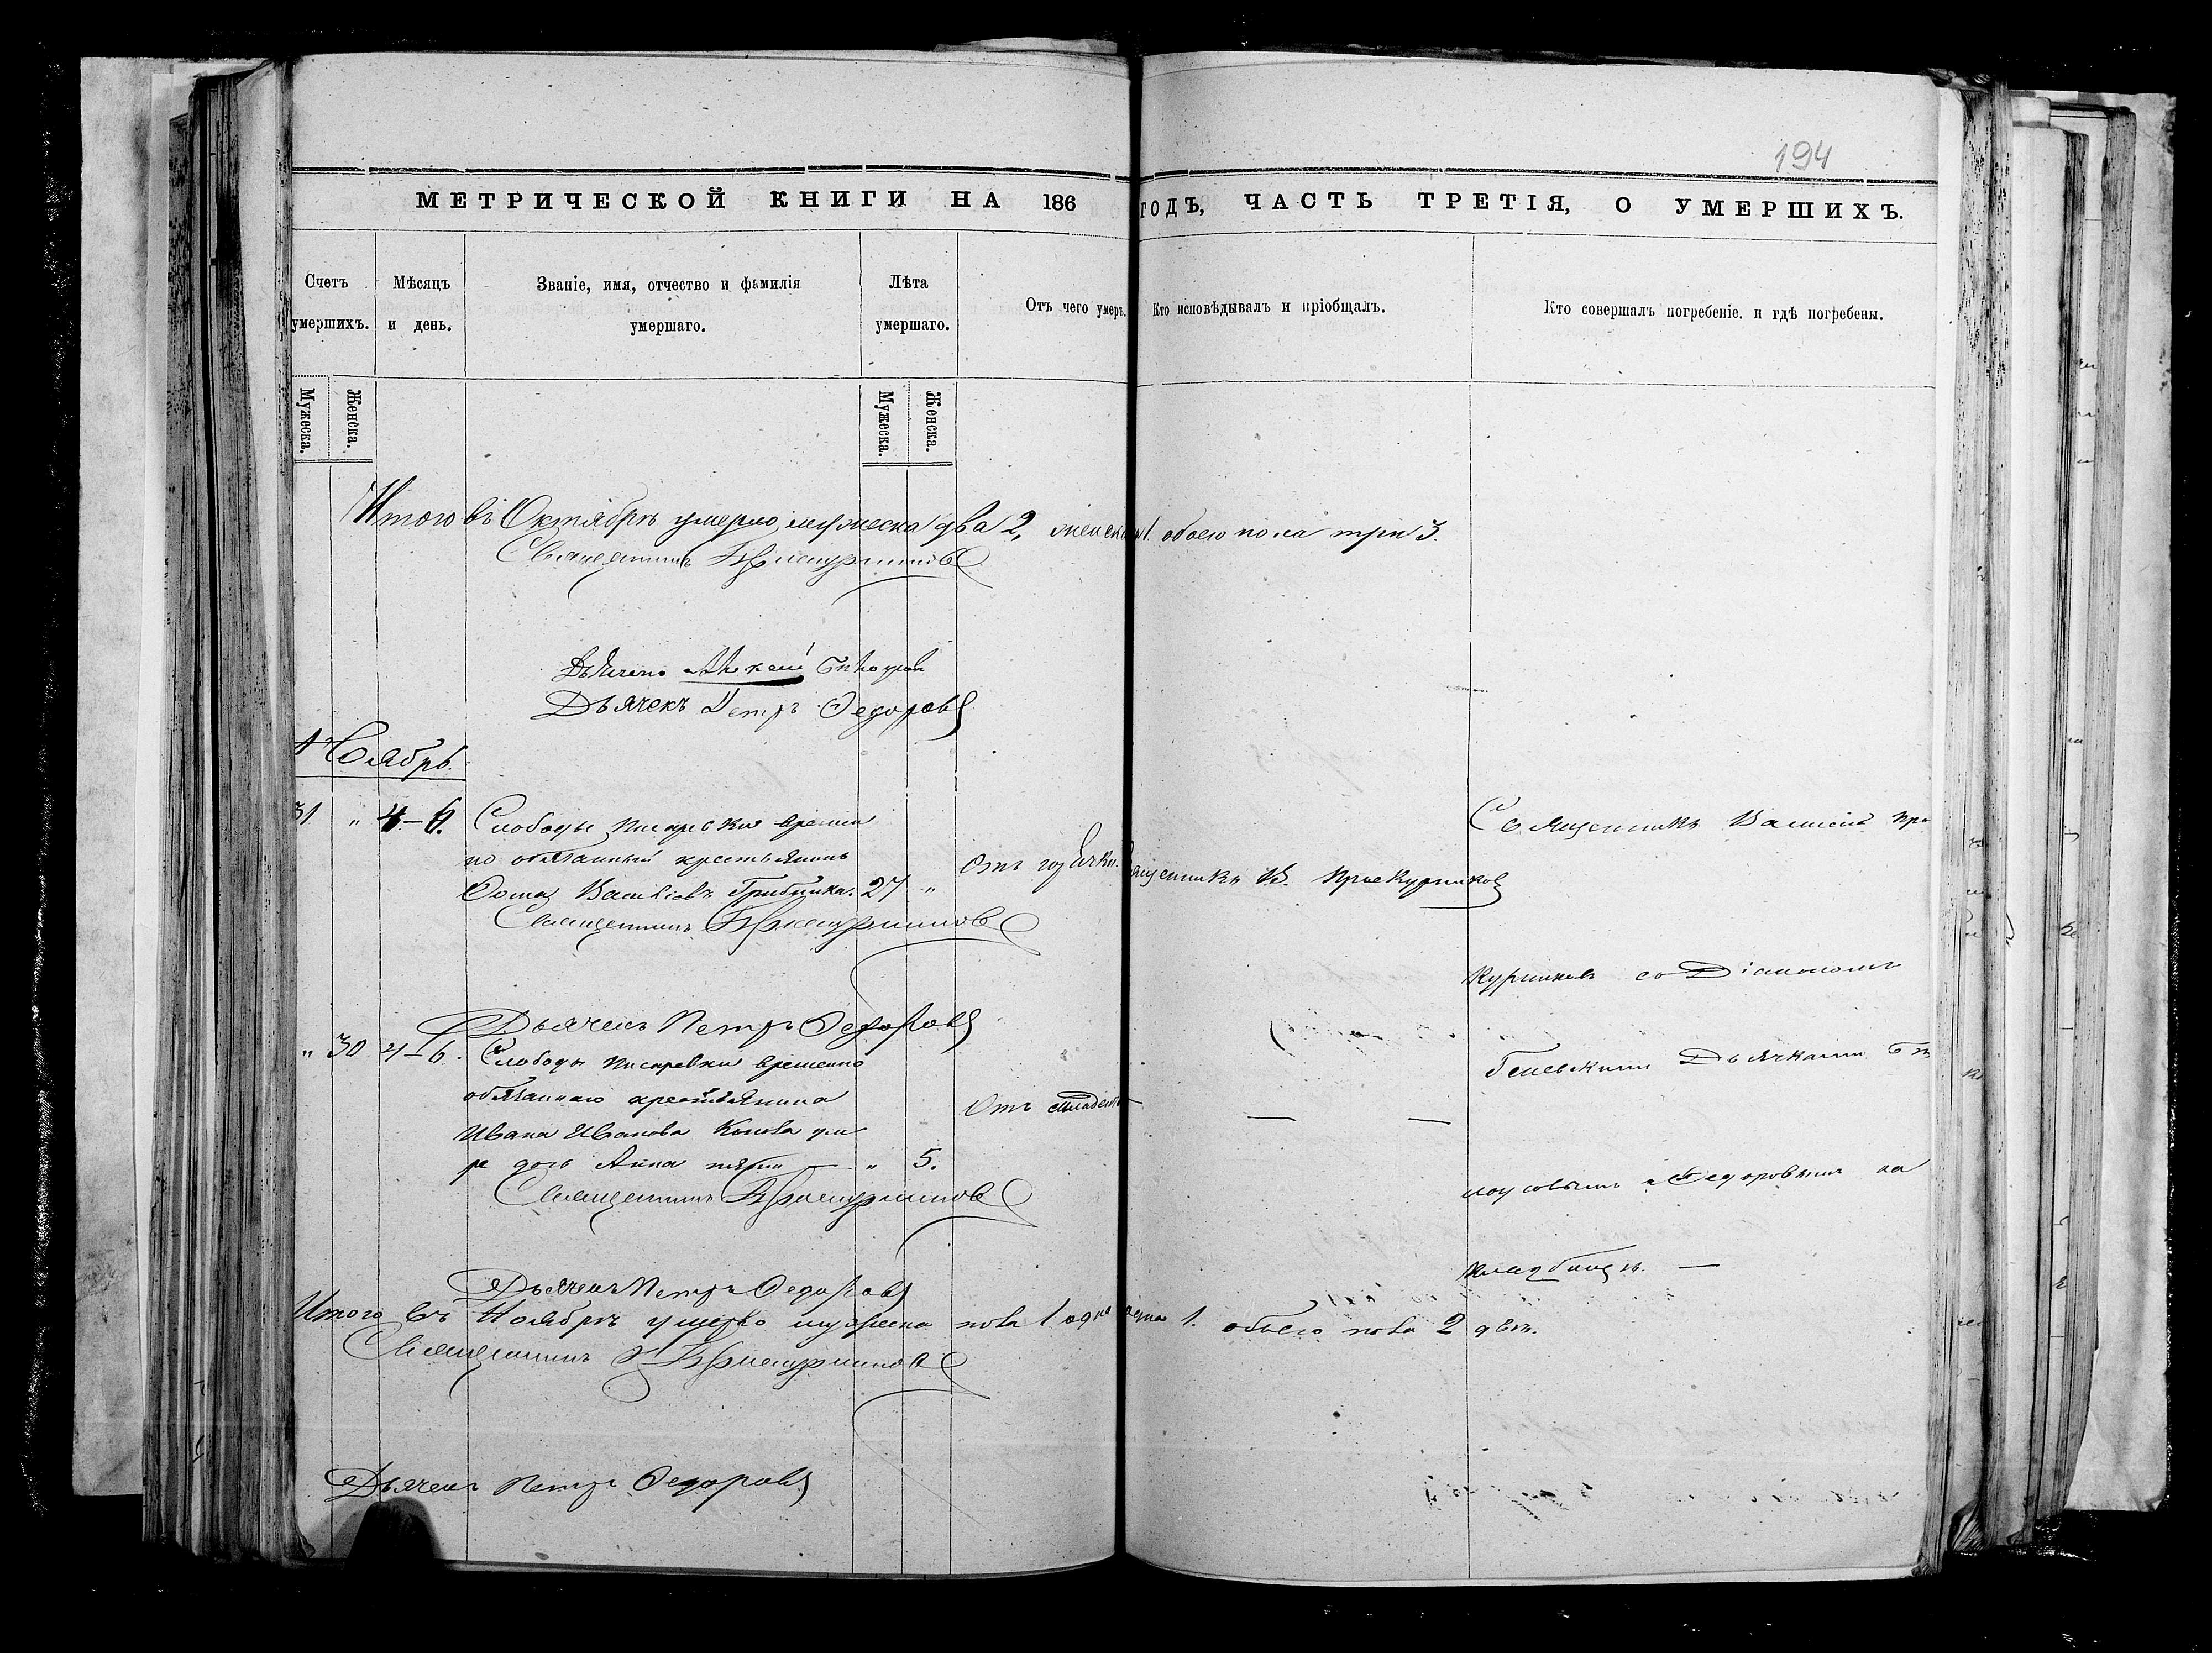 194
МЕТРИЧЕСКОЙ КНИГИ НА 186 ГОДЪ, ЧАСТЬ ТРЕТІЯ, О УМЕРШИХЪ.
Счетъ умершихъ.
Мѣсяцъ и день.
Званіе, имя, отчество и фамилія умершаго.
Лѣта умершаго.
Отъ чего умеръ.
Кто исповѣдывалъ и пріобщалъ.
Кто совершалъ погребеніе. и гдѣ погребены.
Мужеска. Женска. Мужеска. Женска.
Итого въ Октябрѣ умерло мужеска два 2, женска 1. обоего пола три 3.
Священникъ В Проскурниковъ
Дьячекъ
Дьячекъ Петръ Федоровъ
Ноябрь.
31. " 4 – 6. Слободы Писаревки времен
но обязанный крестьянинъ
Фома Васильевъ 27 " Отъ горячки. Священникъ В. Проскурниковъ
Священникъ В Проскурниковъ
Священникъ Василій Про
курниковъ со Діакономъ
Дьячекъ Петръ Федоровъ
" 30 4–6. Слободы Писаревки временно
обязаннаго крестьянина
Ивана Иванова
дочь Анна — " 5. Отъ младен — — —
Священникъ В Проскурниковъ
Дьячками Бѣ
лоусовымъ и Федоровымъ на
кладбищѣ. —
Дьячекъ Петръ Федоровъ
Итого въ Ноябрѣ умерло мужеска пола 1 одна 1. обоего пола 2 двѣ.
Священникъ В Проскурниковъ
Дьячекъ Петръ Федоровъ